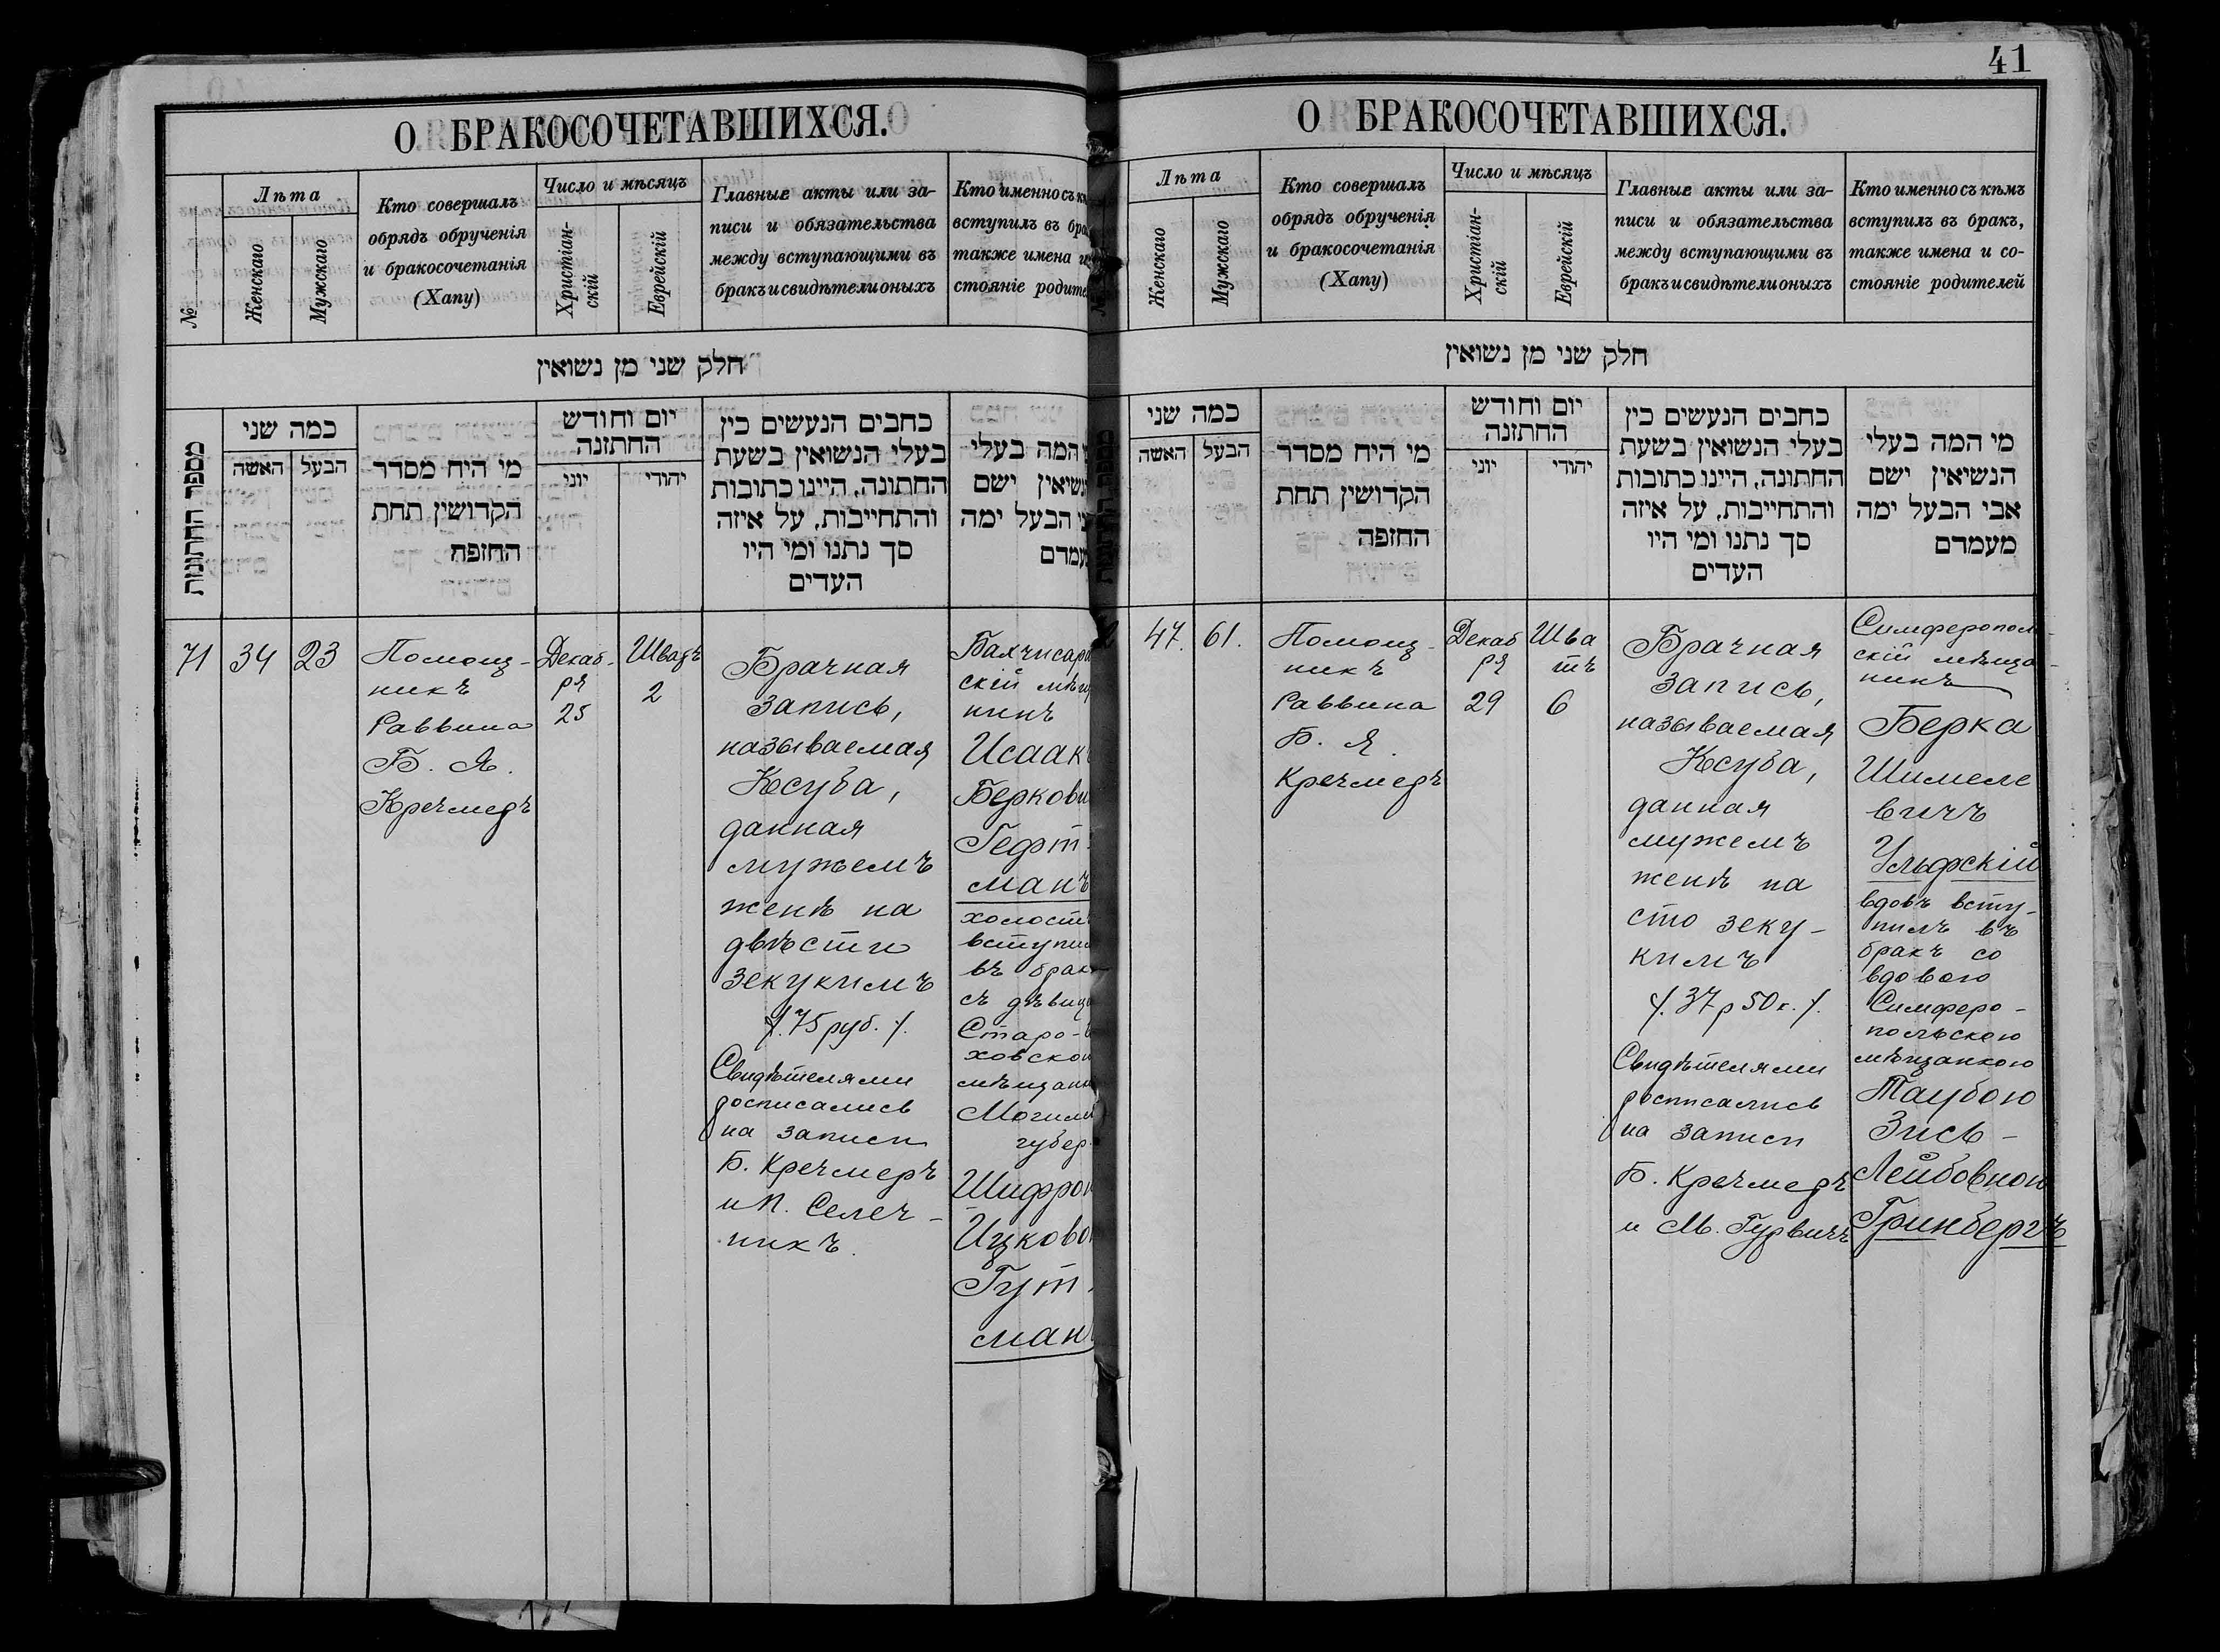 41
О БРАКОСОЧЕТАВШИХСЯ.
№
Лѣта
Женскаго
Мужскаго
Кто совершалъ
обрядъ обрученія
и бракосочетанія
(Хапу)
Число и мѣсяцъ
Христіан-
скій
Еврейскій
Главные акты или за-
писи и обязательства
между вступающими въ
бракъ и свидѣтели оныхъ
Кто именно съ
вступилъ въ
также имена
стояніе
חלק שני מן נשואין
מספר החתונות
כמה שני
האשה
הבעל
מי היח מסדר
הקדושין תחת
החזפח
יום וחודש
החתזנה
יוני
יהודי
כחבים הנעשים כין
בעלי הנשואין בשעת
החתונה, היינו כתובות
והתחייבות, על איזה
סך נתנו ומי היו
העדים
המה בעלי
ישם
הבעל ימה
71
34
23
Помощ-
никъ
Раввина
Б. Я.
Кречмеръ
Декаб-
ря
25
Швадъ
2
Брачная
запись,
называемая
Ксуба,
данная
мужемъ
женѣ на
двѣсти
зекукимъ
/.75 руб./.
Свидѣтелями
росписались
на записи
Б. Кречмеръ
и П. Селеч-
никъ.
Бахчисара
скій мѣщ
нинъ
Исаакъ
Беркови
Гефт-
манъ
холостъ
вступил
въ бракъ
съ дѣвице
Старо-
ховскою
мѣщанк
Могилев
губер
Шифрою
Ицковой
Гут-
ман
О БРАКОСОЧЕТАВШИХСЯ.
Лѣта
Женскаго
Мужскаго
Кто совершалъ
обрядъ обрученія
и бракосочетанія
(Хапу)
Число и мѣсяцъ
Христіан-
скій
Еврейскій
Главные акты или за-
писи и обязательства
между вступающими въ
бракъ и свидѣтели оныхъ
Кто именно съ кѣмъ
вступилъ въ бракъ,
также имена и со-
стояніе родителей
חלק שני מן נשואין
כמה שני
האשה
הבעל
מי היח מסדר
הקדושין תחת
החזפה
יום וחודש
החתזנה
יוני
יהודי
כחבים הנעשים כין
בעלי הנשואין בשעת
החתונה, היינו כתובות
והתחייבות, על איזה
סך נתנו ומי היו
העדים
מי המה בעלי
הנשיאין ישם
אבי הבעל ימה
מעמדם
47.
61.
Помощ-
никъ
Раввина
Б. Я.
Кречмеръ
Декаб
ря
29
Шва
тъ
6
Брачная
запись,
называемая
Ксуба,
данная
мужемъ
женѣ на
сто зеку-
кимъ
/.37 р 50 к./.
Свидѣтелями
росписались
на записи
Б. Кречмеръ
и М. Гурвичъ
Симферополь-
скій мѣща-
нинъ
Берка
Шимеле
вичъ
Ульфскій
вдовъ всту-
пилъ въ
бракъ со
вдовою
Симферо-
польскою
мѣщанкою
Таубою
Зись-
Лейбовною
Гринбергъ